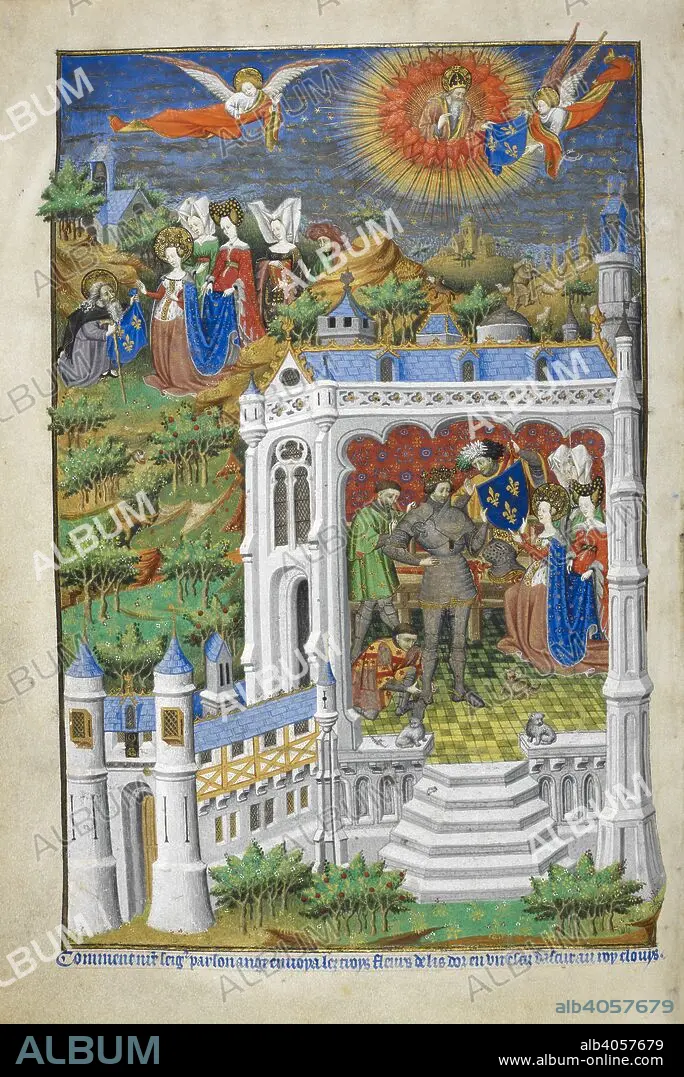 Comment nr̃e seigr̃ par son ange envoya les troys fleurs de lis dor en ung escu dasur au roy clouys.
alb4057679
ALBUM
alb4057679
www.album-online.com